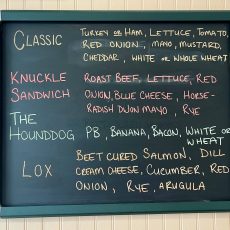 CLASSIC
TURKEY OR HAM, LETTUCE, TOMATO,
RED ONION, MAYO, MUSTARD,
CHEDDAR, WHITE OR WHOLE WHEAT
KNUCKLE
SANDWICH
ROAST BEEF, LETTUCE, RED
ONION, BLUE CHEESE, HORSE-
RADISH DIJON MAYO, RYE
THE
HOUNDDOG
PB, BANANA, BACON, WHITE OR
WHEAT
LOX
BEET CURED SALMON, DILL
CREAM CHEESE, CUCUMBER, RED
ONION, RYE, ARUGULA